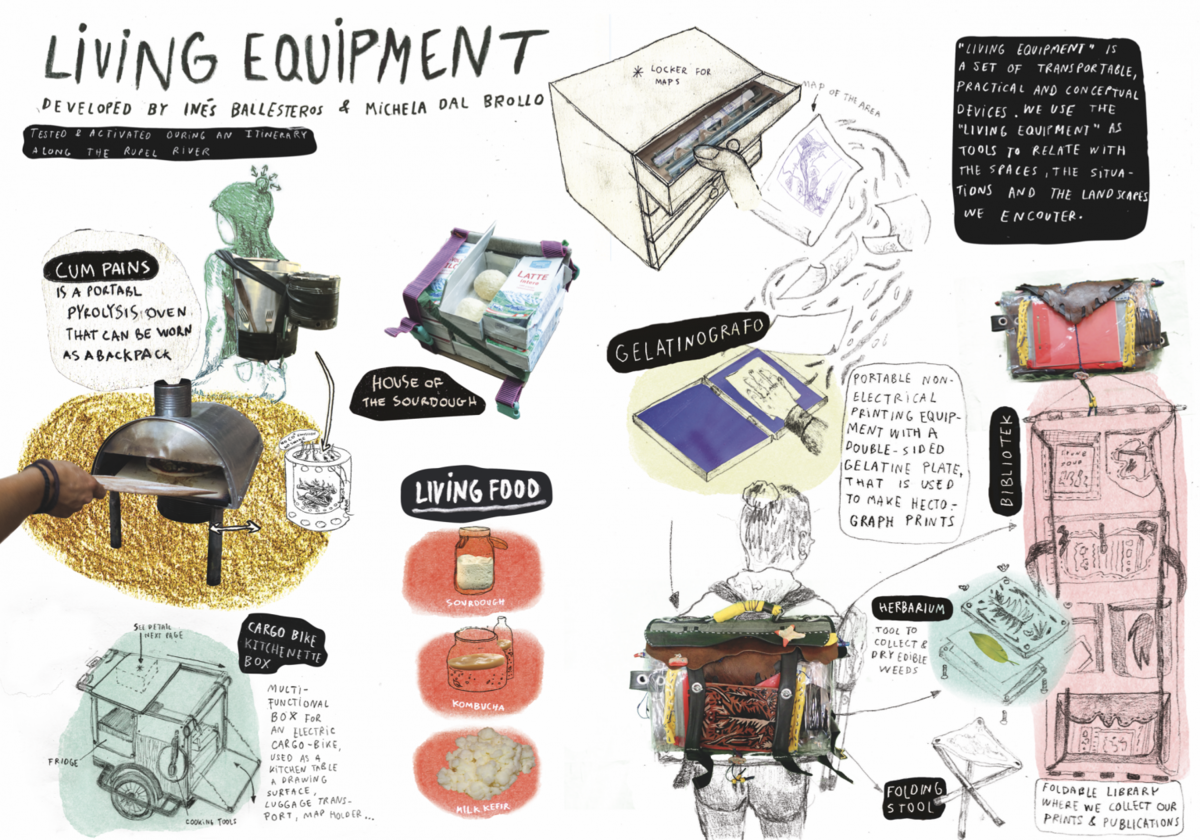 LiViNG EQUiPMENT
DEVELOPED BY INÉS BALLESTEROS & MiCHELA DAL BROLLO
TESTED & ACTIVATED DURING AN ITINERARY
ALONG THE RUPEL RIVER
CUM PAINS
IS A PORTABL
PYROLYSIS OVEN
THAT CAN BE WORN
AS A BACKPACK
HOUSE OF
THE SOURDOUGH
LATTE
LIVING FOOD
SOURDOUGH
KOMBUCHA
MILK KEFIR
SEE DETAIL
NEXT PAGE
CARGO BIKE
KITCHENETTE
BOX
MULTI-
FUNCTIONAL
BOX FOR
AN ELECTRIC
CARGO-BIKE,
USED AS A
KITCHEN TABLE
A DRAWING
SURFACE,
LUGGAGE TRANS-
PORT, MAP HOLDER...
FRIDGE
COOKING TOOLS
* LOCKER FOR
MAPS
MAP OF THE AREA
"LIVING EQUIPMENT" IS
A SET OF TRANSPORTABLE,
PRACTICAL AND CONCEPTUAL
DEVICES. WE USE THE
"LIVING EQUIPMENT" AS
TOOLS TO RELATE WITH
THE SPACES, THE SITUA-
TIONS AND THE LANDSCAPES
WE ENCOUTER.
GELATINOGRAFO
PORTABLE NON-
ELECTRICAL
PRINTING EQUIP-
MENT WITH A
DOUBLE-SIDED
GELATINE PLATE,
THAT IS USED
TO MAKE HECTO-
GRAPH PRINTS
BIBLIOTEK
HERBARIUM
TOOL TO
COLLECT &
DRY EDIBLE
WEEDS
FOLDING
STOOL
FOLDABLE LIBRARY
WHERE WE COLLECT OUR
PRINTS & PUBLICATIONS